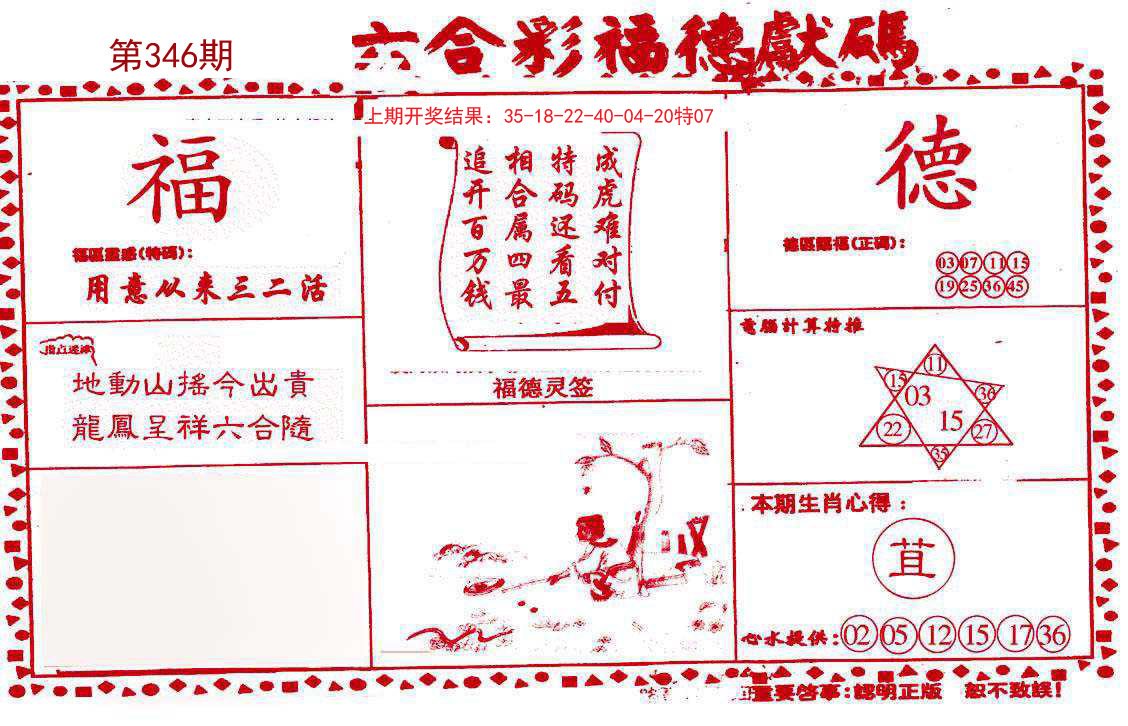 第346期
六合彩福德獻碼
上期开奖结果：35-18-22-40-04-20特07
福
福區靈感(特碼)：
用意从来三二活
指点迷津
地動山搖今出貴
龍鳳呈祥六合隨
成虎难对付
特码还看五
相合属四最
追开百万钱
福德灵签
德
德區賜福(正碼)：
03 07 11 15
19 25 36 45
電腦計算特推
11
15 03 36
22 15 27
35
本期生肖心得：
苴
心水提供：02 05 12 15 17 36
重要啓事：認明正版 恕不致誤！